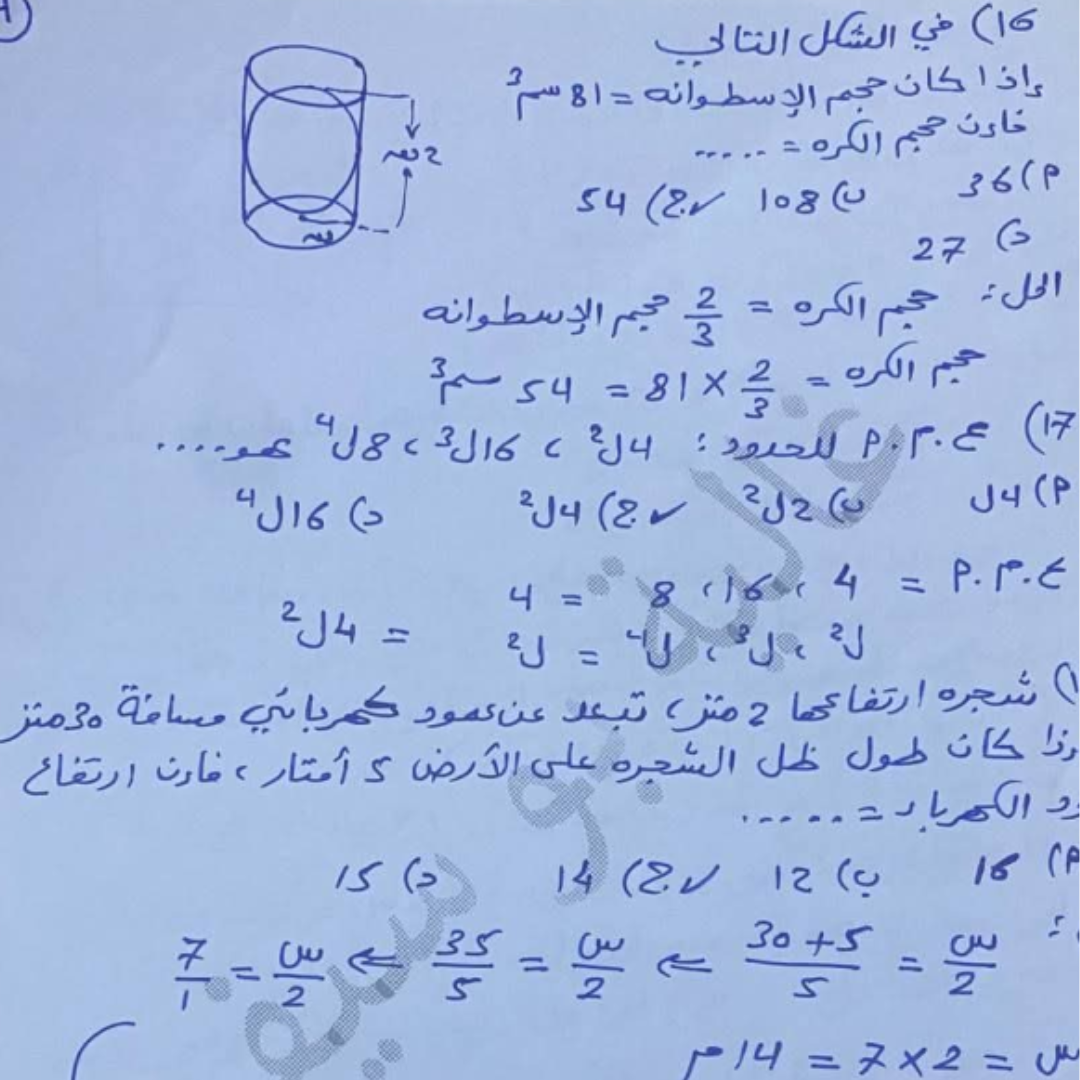 16) في الشكل التالي
إذا كان حجم الإسطوانه = 81 سم3
فإن حجم الكره = .....
2نق
نق
أ) 36 ب) 108 ✓ج) 54
د) 27
الحل: حجم الكره = 2/3 حجم الإسطوانه
حجم الكره = 2/3 × 81 = 54 سم3
17) ع.م.أ للحدود: 4ل2 ، 16ل3 ، 8ل4 هو....
أ) 4ل ب) 2ل2 ✓ج) 4ل2 د) 16ل4
ع.م.أ = 4 ، 16 ، 8 = 4
ل2 ، ل3 ، ل4 = ل2 = 4ل2
شجره ارتفاعها 2 متر، تبعد عن عمود كهربائي مسافة 30 متر
إذا كان طول ظل الشجره على الأرض 5 أمتار ، فإن ارتفاع
الكهرباء = .....
أ) 16 ب) 12 ✓ج) 14 د) 15
س/2 = 30+5/5 ⇐ س/2 = 35/5 ⇐ س/2 = 7/1
س = 2 × 7 = 14 م